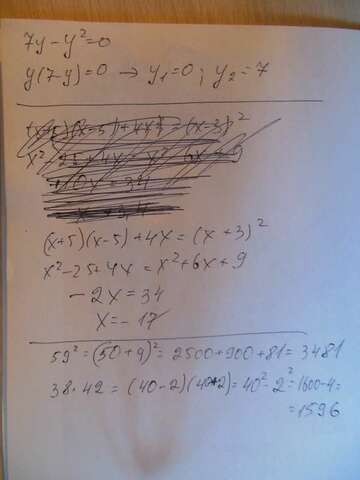 7y - y² = 0
y(7-y) = 0 → y₁ = 0 ; y₂ = 7
(x+5)(x-5) + 4x = (x+3)²
x² - 25 + 4x = x² + 6x + 9
-2x = 34
x = -17
59² = (50+9)² = 2500 + 900 + 81 = 3481
38 · 42 = (40-2)(40+2) = 40² - 2² = 1600 - 4 =
= 1596